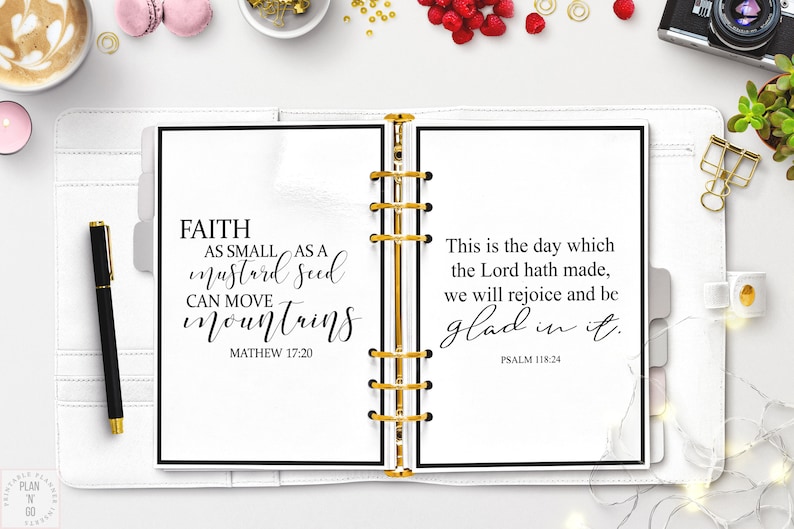 FAITH
AS SMALL AS A
mustard seed
CAN MOVE
mountains
MATHEW 17:20
This is the day which
the Lord hath made,
we will rejoice and be
glad in it.
PSALM 118:24
PRINTABLE PLANNER INSERTS
PLAN
'N'
GO